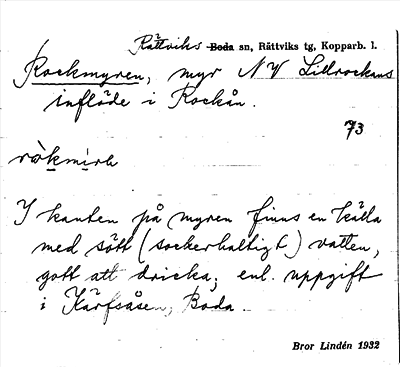 Rättviks Boda sn, Rättviks tg, Kopparb. l.
Rockmyren, myr NV Lillrockans
inflöde i Rockån.
73
I kanten på myren finns en källa
med sött (sockerhaltigt) vatten,
gott att dricka; enl. uppgift
i Kärfsåsen, Boda.
Bror Lindén 1932